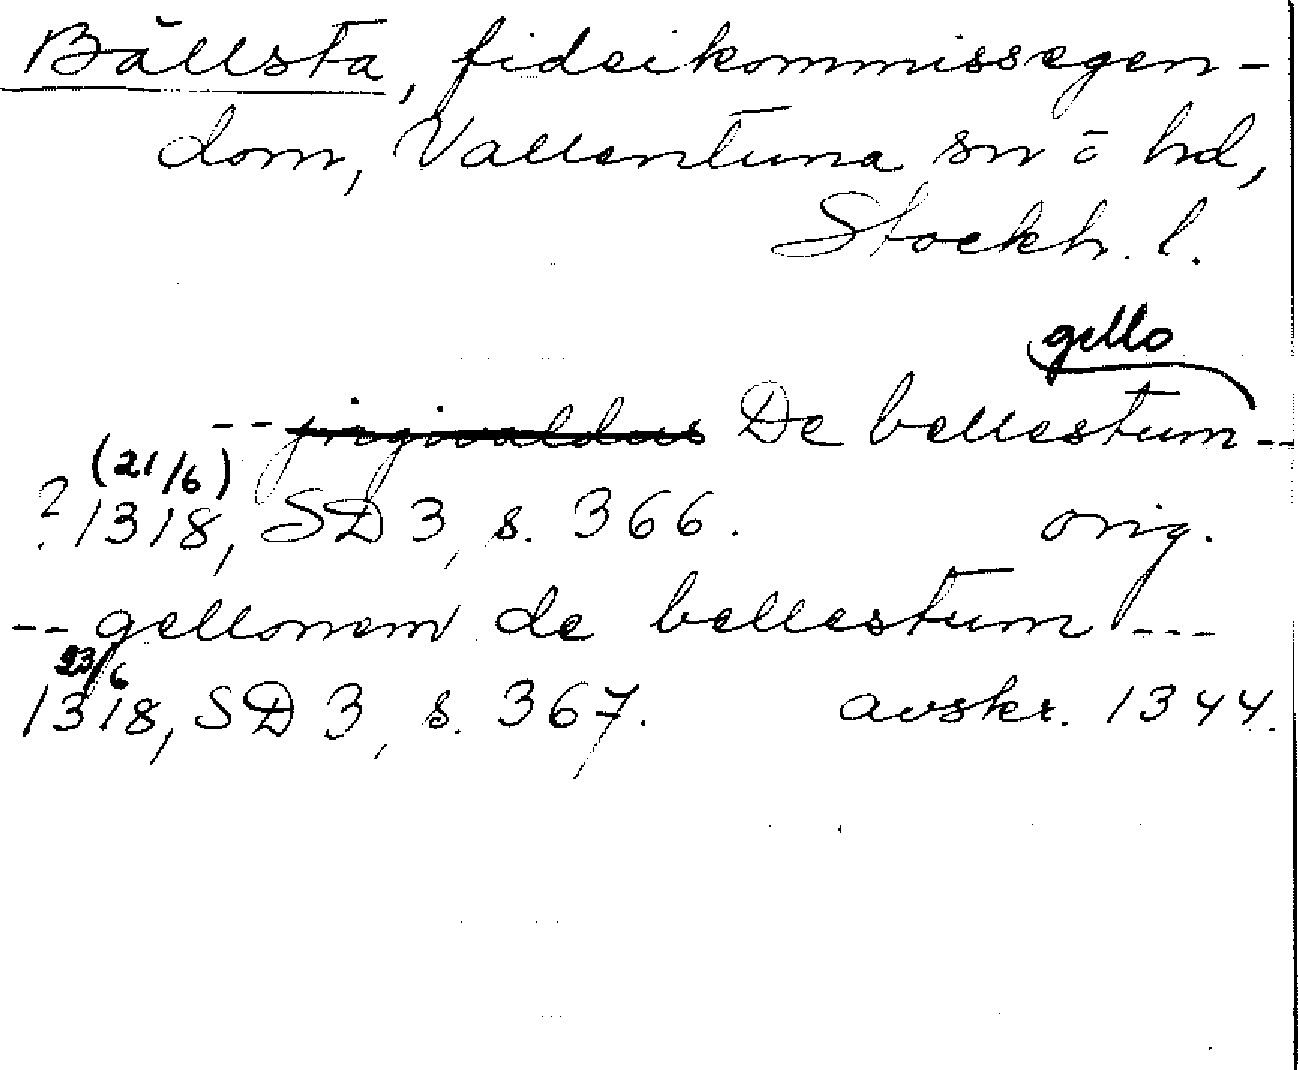 Bällsta, fideikommissegen-
dom, Vallentuna sn o hd,
Stockh. l.
gello
-- jngivaldus De bellestum --
(21/6)
? 1318, SD 3, s. 366. orig.
-- gellonem de bellestum ---
23/6
1318, SD 3, s. 367. avskr. 1344.